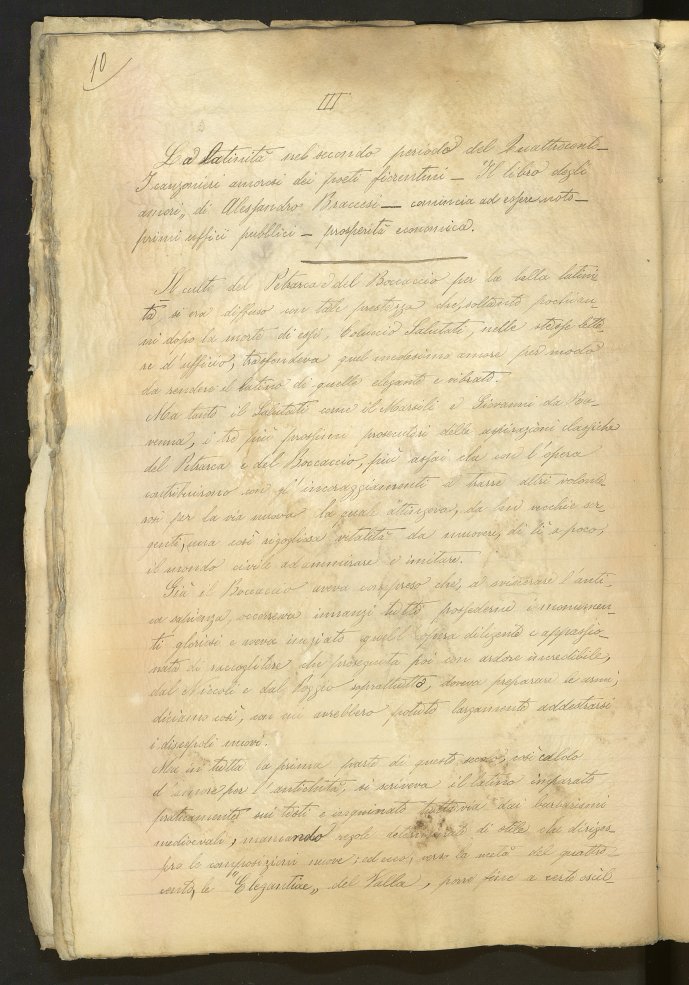 10
III
La latinità nel secondo periodo del Quattrocento_
I canzonieri amorosi dei poeti fiorentini _ "Il libro degli
amori" di Alessandro Braccesi _ comincia ad essere noto_
primi uffici pubblici _ prosperità economica.
Il culto del Petrarca e del Boccaccio per la bella latini-
tà si era diffuso con tale prestezza che, soltanto pochi an-
ni dopo la morte di essi, Coluccio Salutati, nelle stesse lette-
re d'ufficio, trasfondeva quel medesimo amore per modo
da rendere il latino di quelle elegante e vibrato.
Ma tanto il Salutati come il Marsili e Giovanni da Ra-
venna, i tre più prossimi prosecutori delle aspirazioni classiche
del Petrarca e del Boccaccio, più assai che con l'opera
contribuirono con gl'incoraggiamenti a trarre altri volonte-
rosi per la via nuova la quale attingeva, da ben vecchie sor-
genti, una così rigogliosa vitalità da muovere, di lì a poco,
il mondo civile ad ammirare e imitare.
Già il Boccaccio aveva compreso che, a sviscerare l'anti-
ca sapienza, occorreva innanzi tutto possederne i monumen-
ti gloriosi e aveva iniziato quell'opera diligente e appassio-
nata di raccoglitore che proseguita poi con ardore incredibile,
dal Niccoli e dal Poggio soprattutto, doveva preparare le armi,
diciamo così, con cui avrebbero potuto largamente addestrarsi
i discepoli nuovi.
Ma in tutta la prima parte di questo secolo, così caldo
d'amore per l'antichità, si scriveva il latino imparato
praticamente sui testi e inquinato tuttavia dai barbarismi
medioevali, mancando regole determinate di stile che diriges-
sero le composizioni nuove; ed ecco, verso la metà del quattro-
cento, le "Elegantiae" del Valla, porre fine a certe oscil-